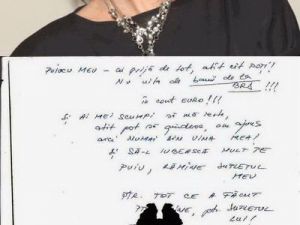 PUIUL MEU – ai grijă de tot, atît cît POȚI!
Nu uita de banii de la
BRD !!!
în cont EURO!!!
Și AI MEI SCUMPI să mă ierte,
atît pot să gîndesc, am ajuns
aici NUMAI DIN VINA MEA!
Și SĂ-L IUBEASCĂ MULT PE
PUIU, RĂMÎNE SUFLETUL
MEU
PTR. TOT CE A FĂCUT
PTR. MINE, ptr. SUFLETUL
LUI!